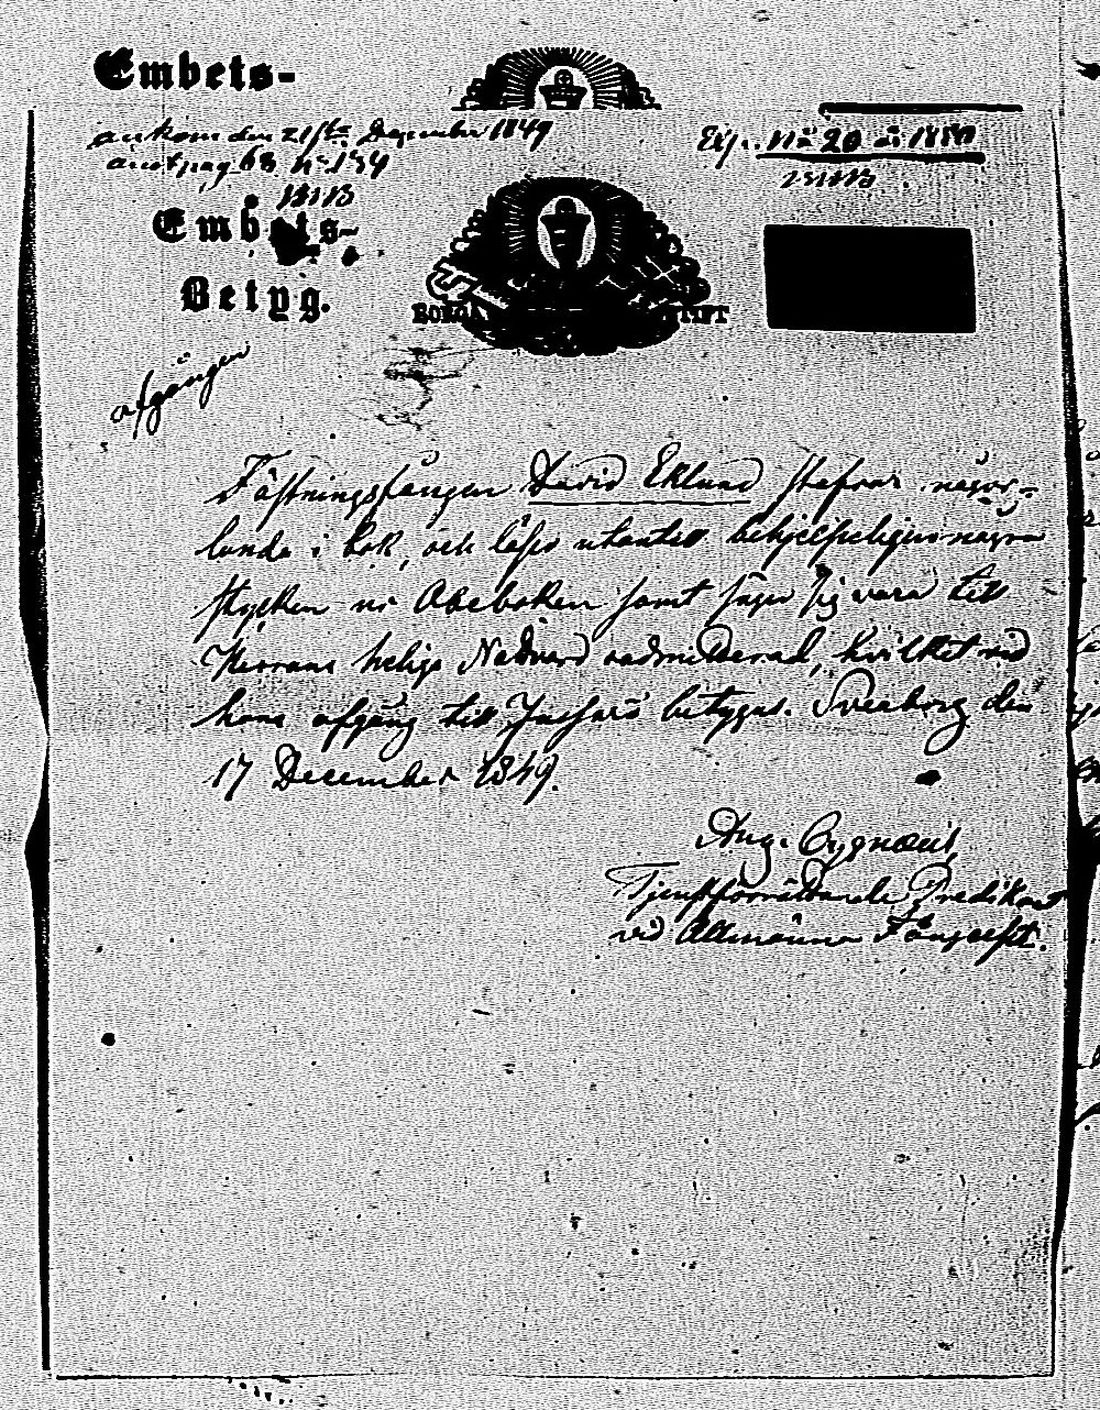 Embets-
ankom den 21sta December 1849
Exp. No 20 år 1850
Embets-
Betyg.
BORGÅ STIFT
afgången
Fästningsfången David Eklund stafvar någor-
lunda i bok, och läser utantill behjelpeligen några
stycken ur Abcboken samt säges sig vara till
Herrans heliga Nattvard admitterad, hvilket vid
hans afgång till betygas. Sveaborg den
17 December 1849.
Aug. Cygnæus
Tjenstförrättande Predikant
vid Allmänna